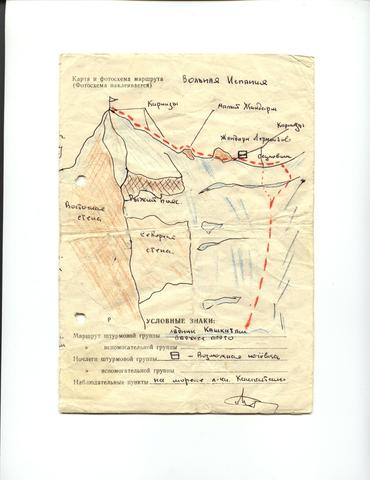 Карта и фотосхема маршрута
(Фотосхема наклеивается)
Вольная Испания
Карнизы
малый Жандарм
Карнизы
Жандарм
седловина
Рыжий пояс
Восточная
стена
северная
стена
Р
УСЛОВНЫЕ ЗНАКИ:
Маршрут штурмовой группы ледник Кашкаташ
» вспомогательной группы
Ночлеги штурмовой группы - Возможная ночёвка
» вспомогательной группы
Наблюдательные пункты на морене л-ка Кашкаташ